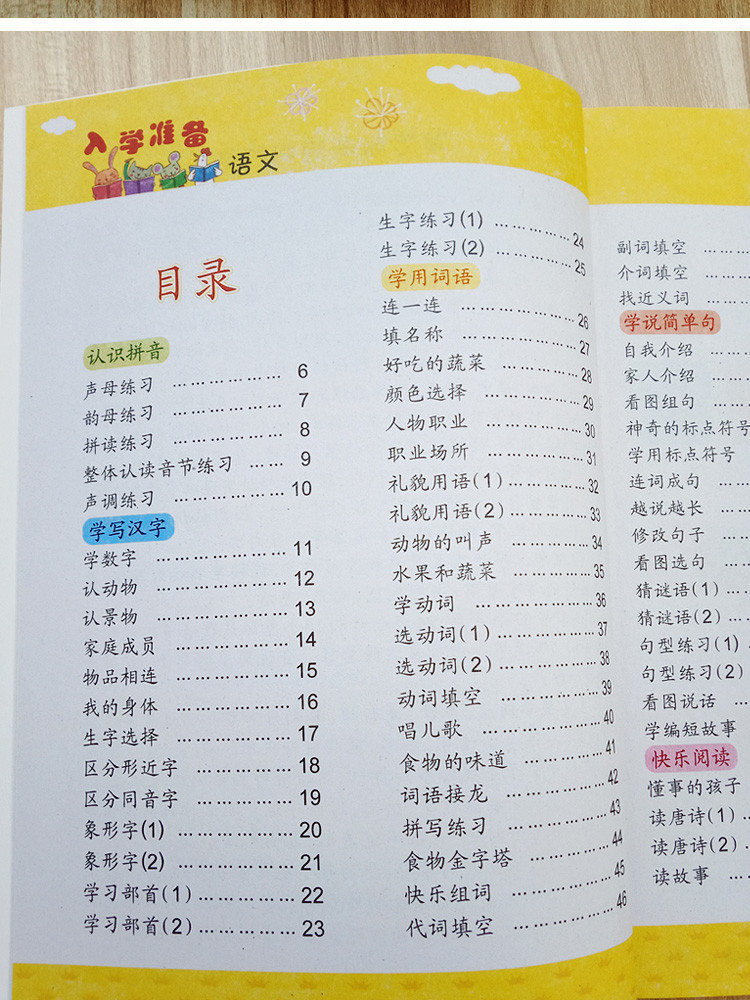 入学准备
语文
目录
认识拼音
声母练习 ……………… 6
韵母练习 ……………… 7
拼读练习 ……………… 8
整体认读音节练习 …… 9
声调练习 ……………… 10
学写汉字
学数字 ……………… 11
认动物 ……………… 12
认景物 ……………… 13
家庭成员 ……………… 14
物品相连 ……………… 15
我的身体 ……………… 16
生字选择 ……………… 17
区分形近字 …………… 18
区分同音字 …………… 19
象形字(1) …………… 20
象形字(2) …………… 21
学习部首(1) ………… 22
学习部首(2) ………… 23
生字练习(1) ………… 24
生字练习(2) ………… 25
学用词语
连一连 ……………… 26
填名称 ……………… 27
好吃的蔬菜 ………… 28
颜色选择 …………… 29
人物职业 …………… 30
职业场所 …………… 31
礼貌用语(1) ………… 32
礼貌用语(2) ………… 33
动物的叫声 ………… 34
水果和蔬菜 ………… 35
学动词 ……………… 36
选动词(1) ………… 37
选动词(2) ………… 38
动词填空 …………… 39
唱儿歌 ……………… 40
食物的味道 ………… 41
词语接龙 …………… 42
拼写练习 …………… 43
食物金字塔 ………… 44
快乐组词 …………… 45
代词填空 …………… 46
副词填空 ……
介词填空 ……
找近义词 ……
学说简单句
自我介绍 ……
家人介绍 ……
看图组句 ……
神奇的标点符号
学用标点符号
连词成句 ……
越说越长 ……
修改句子 ……
看图选句 ……
猜谜语(1) ……
猜谜语(2) ……
句型练习(1)
句型练习(2)
看图说话 …
学编短故事
快乐阅读
懂事的孩子
读唐诗(1) …
读唐诗(2) …
读故事 ……